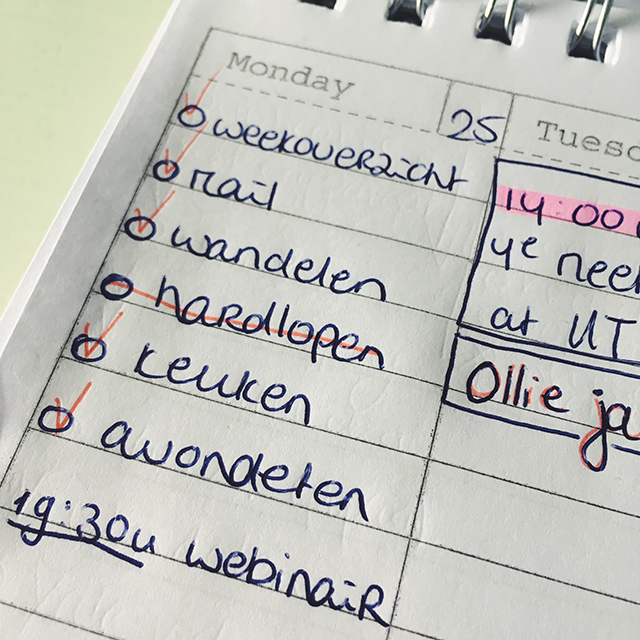 Monday 25
weekoverzicht
mail
wandelen
hardlopen
keuken
avondeten
19:30u webinair
Tuesd
14:00
4e neef
at UT
Ollie ja